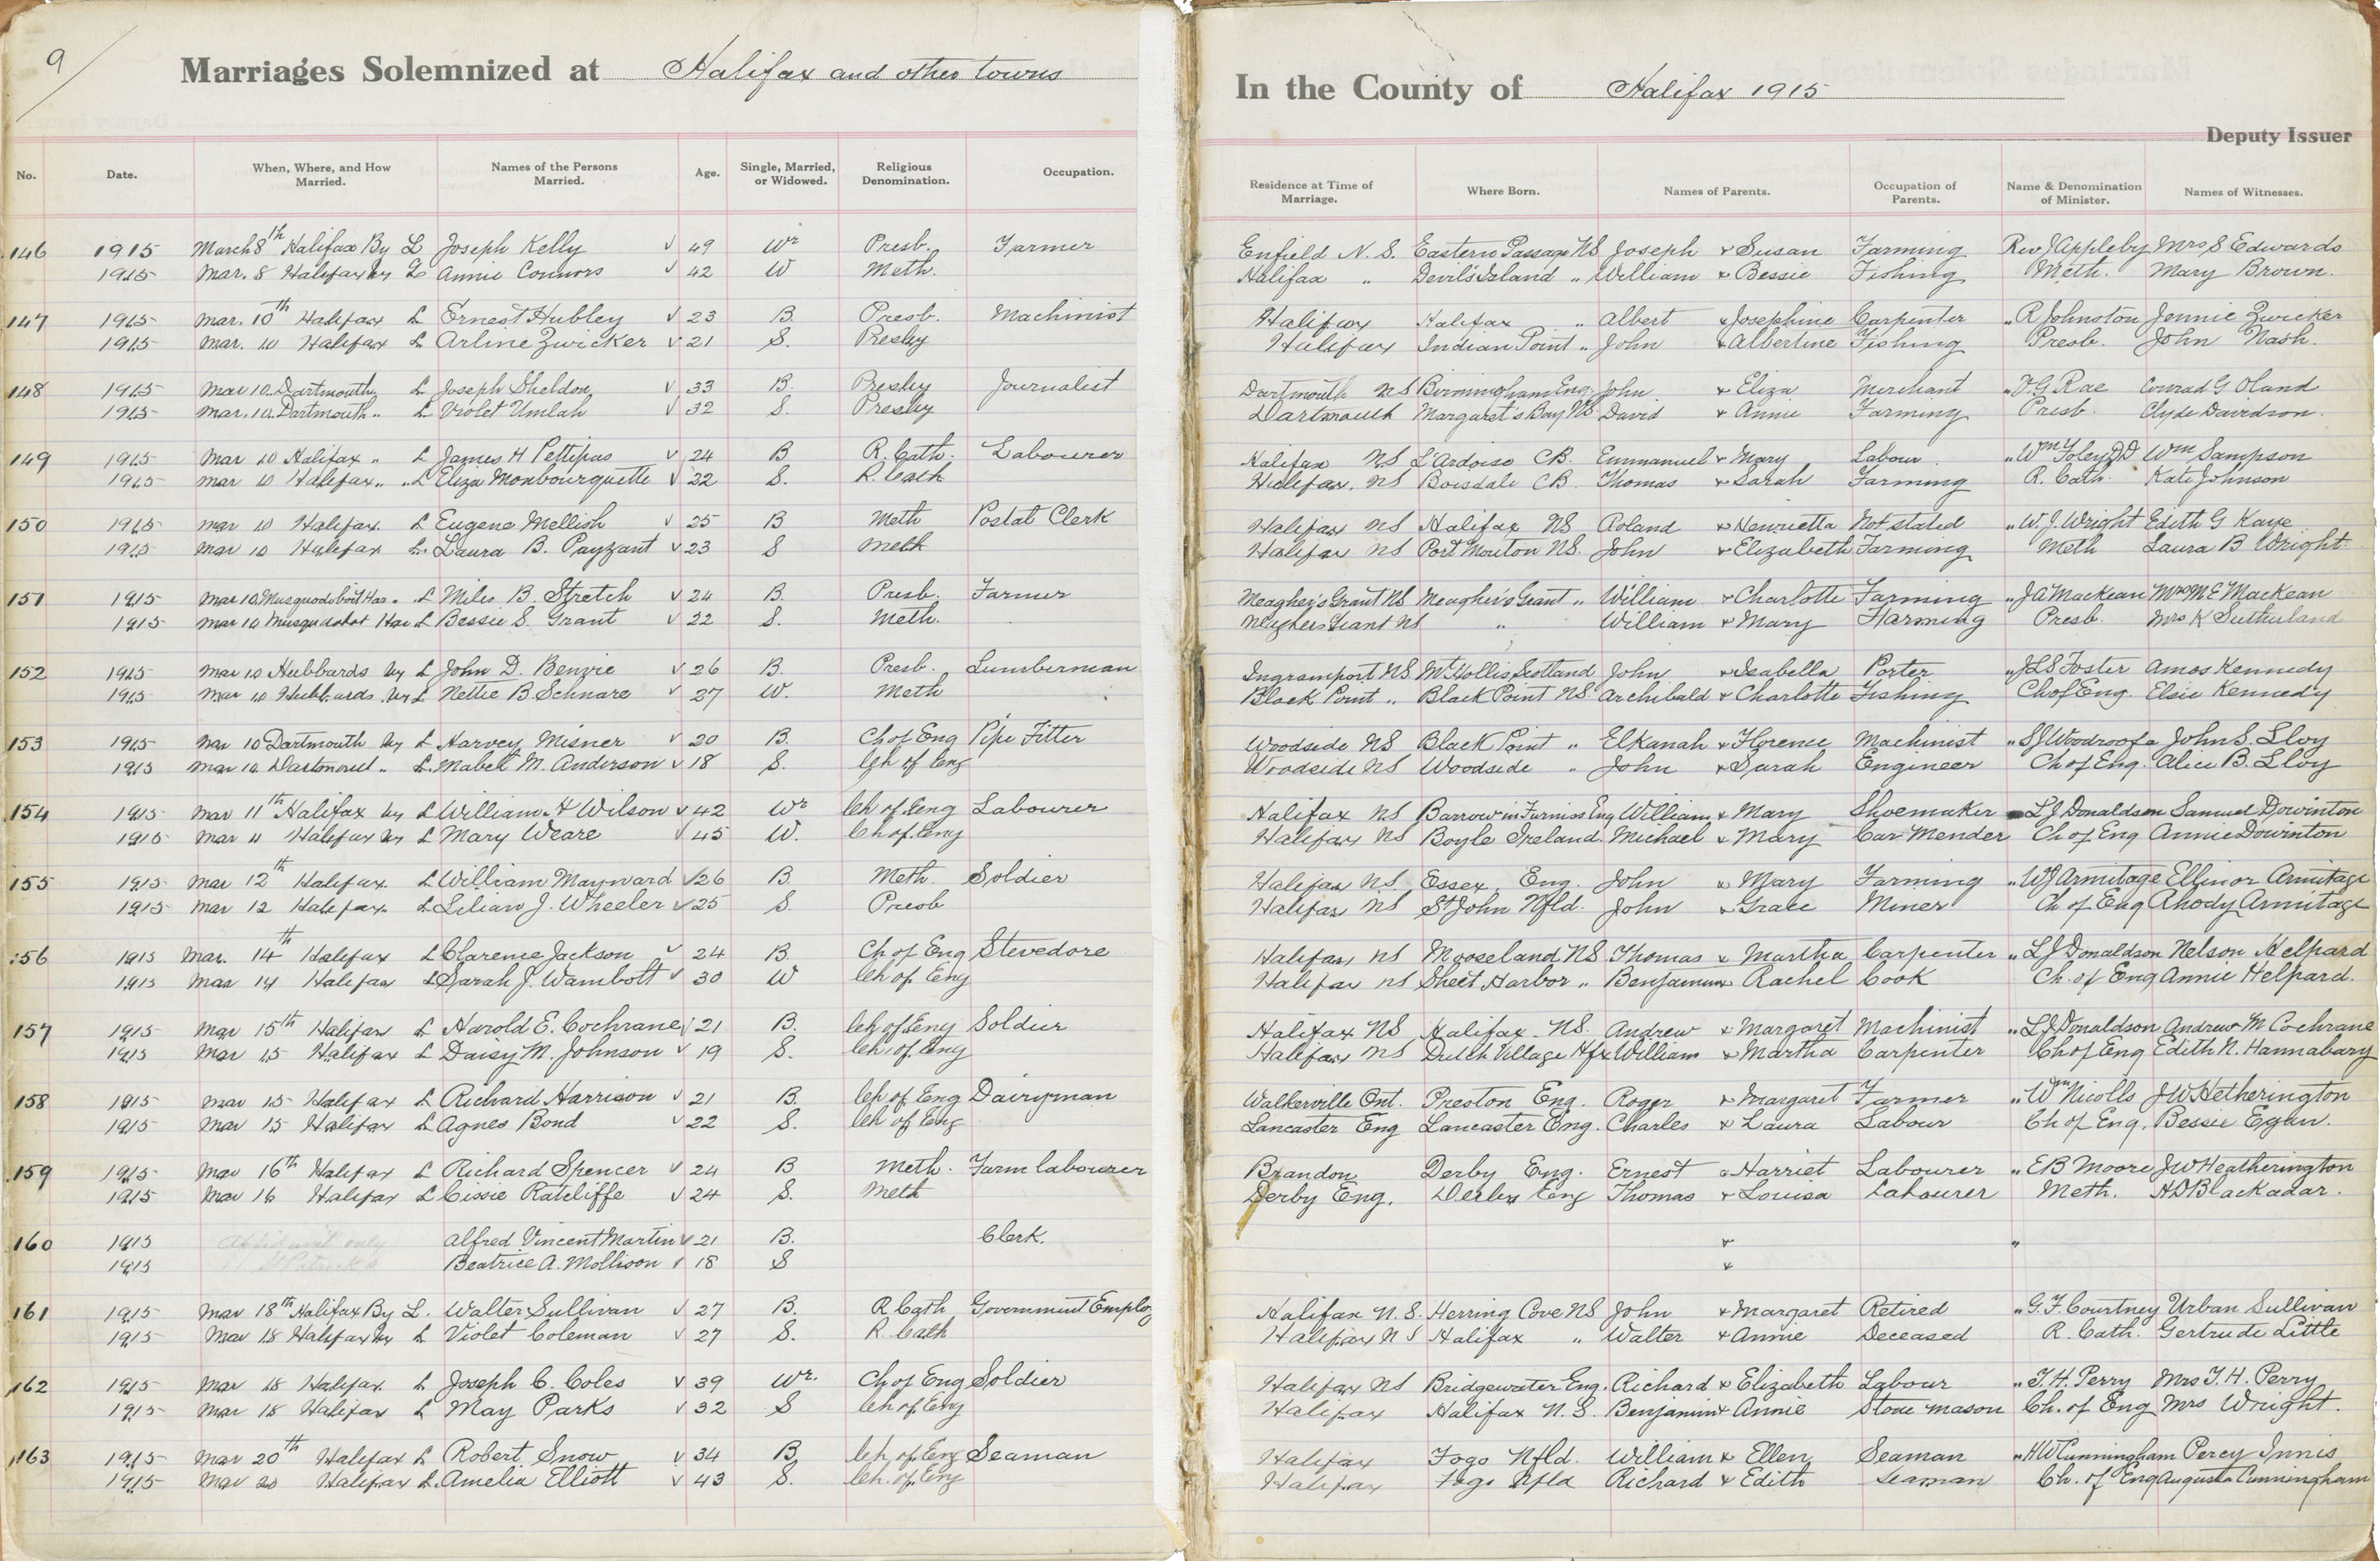 9
Marriages Solemnized at Halifax and other towns
In the County of Halifax 1915
Deputy Issuer
No. Date. When, Where, and How Married. Names of the Persons Married. Age. Single, Married, or Widowed. Religious Denomination. Occupation. Residence at Time of Marriage. Where Born. Names of Parents. Occupation of Parents. Name & Denomination of Minister. Names of Witnesses.
146 1915 March 8th Halifax By L Joseph Kelly √ 49 Wr Presb. Farmer Enfield N.S. Eastern Passage NS Joseph & Susan Farming Rev J Appleby Mrs S Edwards
1915 Mar. 8 Halifax by L Annie Connors √ 42 W Meth. Halifax " Devil's Island " William & Bessie Fishing Meth. Mary Brown.
147 1915 Mar. 10th Halifax L Ernest Hubley √ 23 B. Presb. Machinist Halifax Halifax " Albert & Josephine Carpenter " R Johnston Jennie Zwicker
1915 Mar. 10 Halifax L Arline Zwicker √ 21 S. Presby Halifax Indian Point " John & Albertine Fishing Presb. John Nash.
148 1915 Mar 10. Dartmouth L Joseph Sheldon √ 33 B. Presby Journalist Dartmouth NS Birmingham Eng. John & Eliza Merchant " G Rae Conrad G Oland
1915 Mar. 10. Dartmouth " L Violet Umlah √ 32 S. Presby Dartmouth Margaret's Bay NS. David & Annie Farming Presb. Clyde Davidson.
149 1915 Mar 10 Halifax " L James H Pettipas √ 24 B R. Cath. Labourer Halifax NS L'Ardoise CB. Emmanuel & Mary Labour " Wm Foley DD Wm Sampson
1915 Mar 10 Halifax " " L Eliza Monbourquette √ 22 S. R. Cath Halifax. NS Boisdale CB. Thomas & Sarah Farming R. Cath. Kate Johnson
150 1915 Mar 10 Halifax. L Eugene Mellish √ 25 B Meth Postal Clerk Halifax NS Halifax NS Roland & Henrietta Not stated " W. J. Wright Edith G Kaye
1915 Mar 10 Halifax L. Laura B. Payzant √ 23 S Meth Halifax NS Port Mouton NS. John & Elizabeth Farming Meth Laura B Wright
151 1915 Mar 10. Musquodoboit Har. L Miles B. Stretch √ 24 B. Presb. Farmer Meagher's Grant NS Meagher's Grant " William & Charlotte Farming " J A MacKean Mrs M E MacKean
1915 Mar 10 Musquodobot Har L Bessie S. Grant √ 22 S. Meth. Meaghers Grant NS " William & Mary Farming Presb. Mrs K Sutherland
152 1915 Mar 10 Hubbards by L John D. Benvie √ 26 B. Presb. Lumberman Ingramport NS Mt Hollis Scotland John & Isabella Porter " J L S Foster Amos Kennedy
1915 Mar 10 Hubbards. by L Nettie B Schnare √ 37 W. Meth Black Point " Black Point NS. Archibald & Charlotte Fishing Ch of Eng. Elsie Kennedy
153 1915 Mar 10 Dartmouth by L Harvey Misner √ 20 B. Ch of Eng Pipe Fitter Woodside NS Black Point " Elkanah & Florence Machinist " S J Woodroofe John S. Lloy
1915 Mar 10. Dartmouth " L. Mabel M. Anderson √ 18 S. Ch of Eng Woodside NS Woodside " John & Sarah Engineer Ch of Eng. Alice B. Lloy
154 1915 Mar 11th Halifax by L William H Wilson √ 42 Wr Ch of Eng Labourer Halifax NS Barrow in Furniss Eng William & Mary Shoemaker L J Donaldson Samuel Dowinton
1915 Mar 11 Halifax by L Mary Weare √ 45 W. Ch of. Eng Halifax NS Boyle Ireland. Michael & Mary Car Mender Ch of Eng Annie Dowinton
155 1915 Mar 12th Halifax. L William Mayward √ 26 B. Meth. Soldier Halifax NS Essex, Eng. John & Mary Farming " W J Armitage Ellinor Armitage
1915 Mar 12 Halifax. L Lilian J. Wheeler √ 25 S. Presb Halifax NS St John Nfld. John & Grace Miner Ch of Eng Rhody Armitage
156 1915 Mar. 14th Halifax L Clarence Jackson √ 24 B. Ch of Eng Stevedore Halifax NS Mooseland NS Thomas & Martha Carpenter " L J Donaldson Nelson Helpard
1915 Mar 14 Halifax L Sarah J. Wambolt √ 30 W Ch of. Eng Halifax NS Sheet Harbor " Benjamin & Rachel Cook Ch. of Eng Annie Helpard.
157 1915 Mar 15th Halifax L Harold E. Cochrane √ 21 B. Ch of. Eng Soldier Halifax NS Halifax NS. Andrew & Margaret Machinist " L J Donaldson Andrew M Cochrane
1915 Mar 15 Halifax L Daisy M. Johnson √ 19 S. Ch. of. Eng Halifax NS Dutch Village Hfx William & Martha Carpenter Ch of Eng Edith N. Hannabary
158 1915 Mar 15 Halifax L Richard Harrison √ 21 B. Ch of Eng Dairyman Walkerville Ont. Preston Eng. Roger & Margaret Farmer " Wm Nicolls J W Hetherington
1915 Mar 15 Halifax L Agnes Bond √ 22 S. Ch of Eng Lancaster Eng Lancaster Eng. Charles & Laura Labour Ch of Eng. Bessie Egan.
159 1915 Mar 16th Halifax L Richard Spencer √ 24 B Meth. Farm labourer Brandon Derby Eng. Ernest & Harriet Labourer " E B Moore J W Heatherington
1915 Mar 16 Halifax L Cissie Ratcliffe √ 24 S. Meth Derby Eng. Derby Eng Thomas & Louisa Labourer Meth. H D Blackadar.
160 1915 Affidavit only Alfred Vincent Martin √ 21 B. Clerk. & "
1915 St Patrick's Beatrice A. Mollison √ 18 S &
161 1915 Mar 18th Halifax By L. Walter Sullivan √ 27 B. R Cath Government Employ Halifax N.S. Herring Cove NS John & Margaret Retired " G. F. Courtney Urban Sullivan
1915 Mar 18 Halifax by L Violet Coleman √ 27 S. R. Cath Halifax N S Halifax " Walter & Annie Deceased R. Cath. Gertrude Little
162 1915 Mar 18 Halifax. L Joseph C. Coles √ 39 Wr. Ch of Eng Soldier Halifax NS Bridgewater Eng. Richard & Elizabeth Labour " T. H. Perry Mrs T. H. Perry
1915 Mar 18 Halifax L May Parks √ 32 S Ch of Eng Halifax Halifax N.S. Benjamin & Annie Stone mason Ch. of Eng Mrs Wright.
163 1915 Mar 20th Halifax L Robert Snow √ 34 B Ch of Eng Seaman Halifax Fogo Nfld. William & Ellen Seaman " H W Cunningham Percy Innis
1915 Mar 20 Halifax L. Amelia Elliott √ 43 S. Ch. of. Eng Halifax Fogo Nfld Richard & Edith Seaman Ch. of Eng Augusta Cunningham